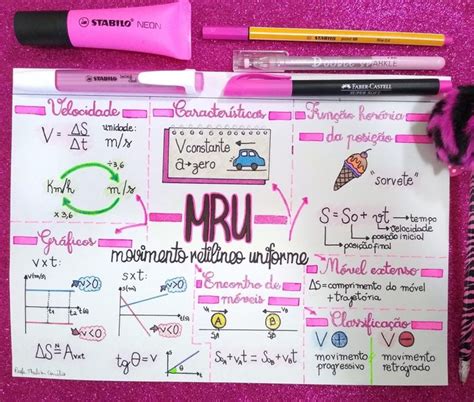 STABILO NEON
STABILO
DOUBLE SPARKLE
STABILO
FABER-CASTELL
SUPER SOFT
Velocidade
V = ΔS
Δt
unidade:
m/s
÷3,6
Km/h
m/s
x 3,6
Características
V constante
a → zero
Função horária
da posição
"sorvete"
S = So + vt → tempo
velocidade
posição inicial
posição final
MRU
movimento retilíneo uniforme
Gráficos
v x t:
v(m/s)
v>0
t1
t2
t(s)
v<0
ΔS = Avxt
s x t:
v>0
t(s)
v<0
tgθ = v
θ
Encontro de
móveis
VA
VB
A
B
SA
SB
SA + VAt = SB + VBt
Móvel extenso
ΔS = comprimento do móvel
+ trajetória
Classificação
V +
movimento
progressivo
V -
movimento
retrógrado